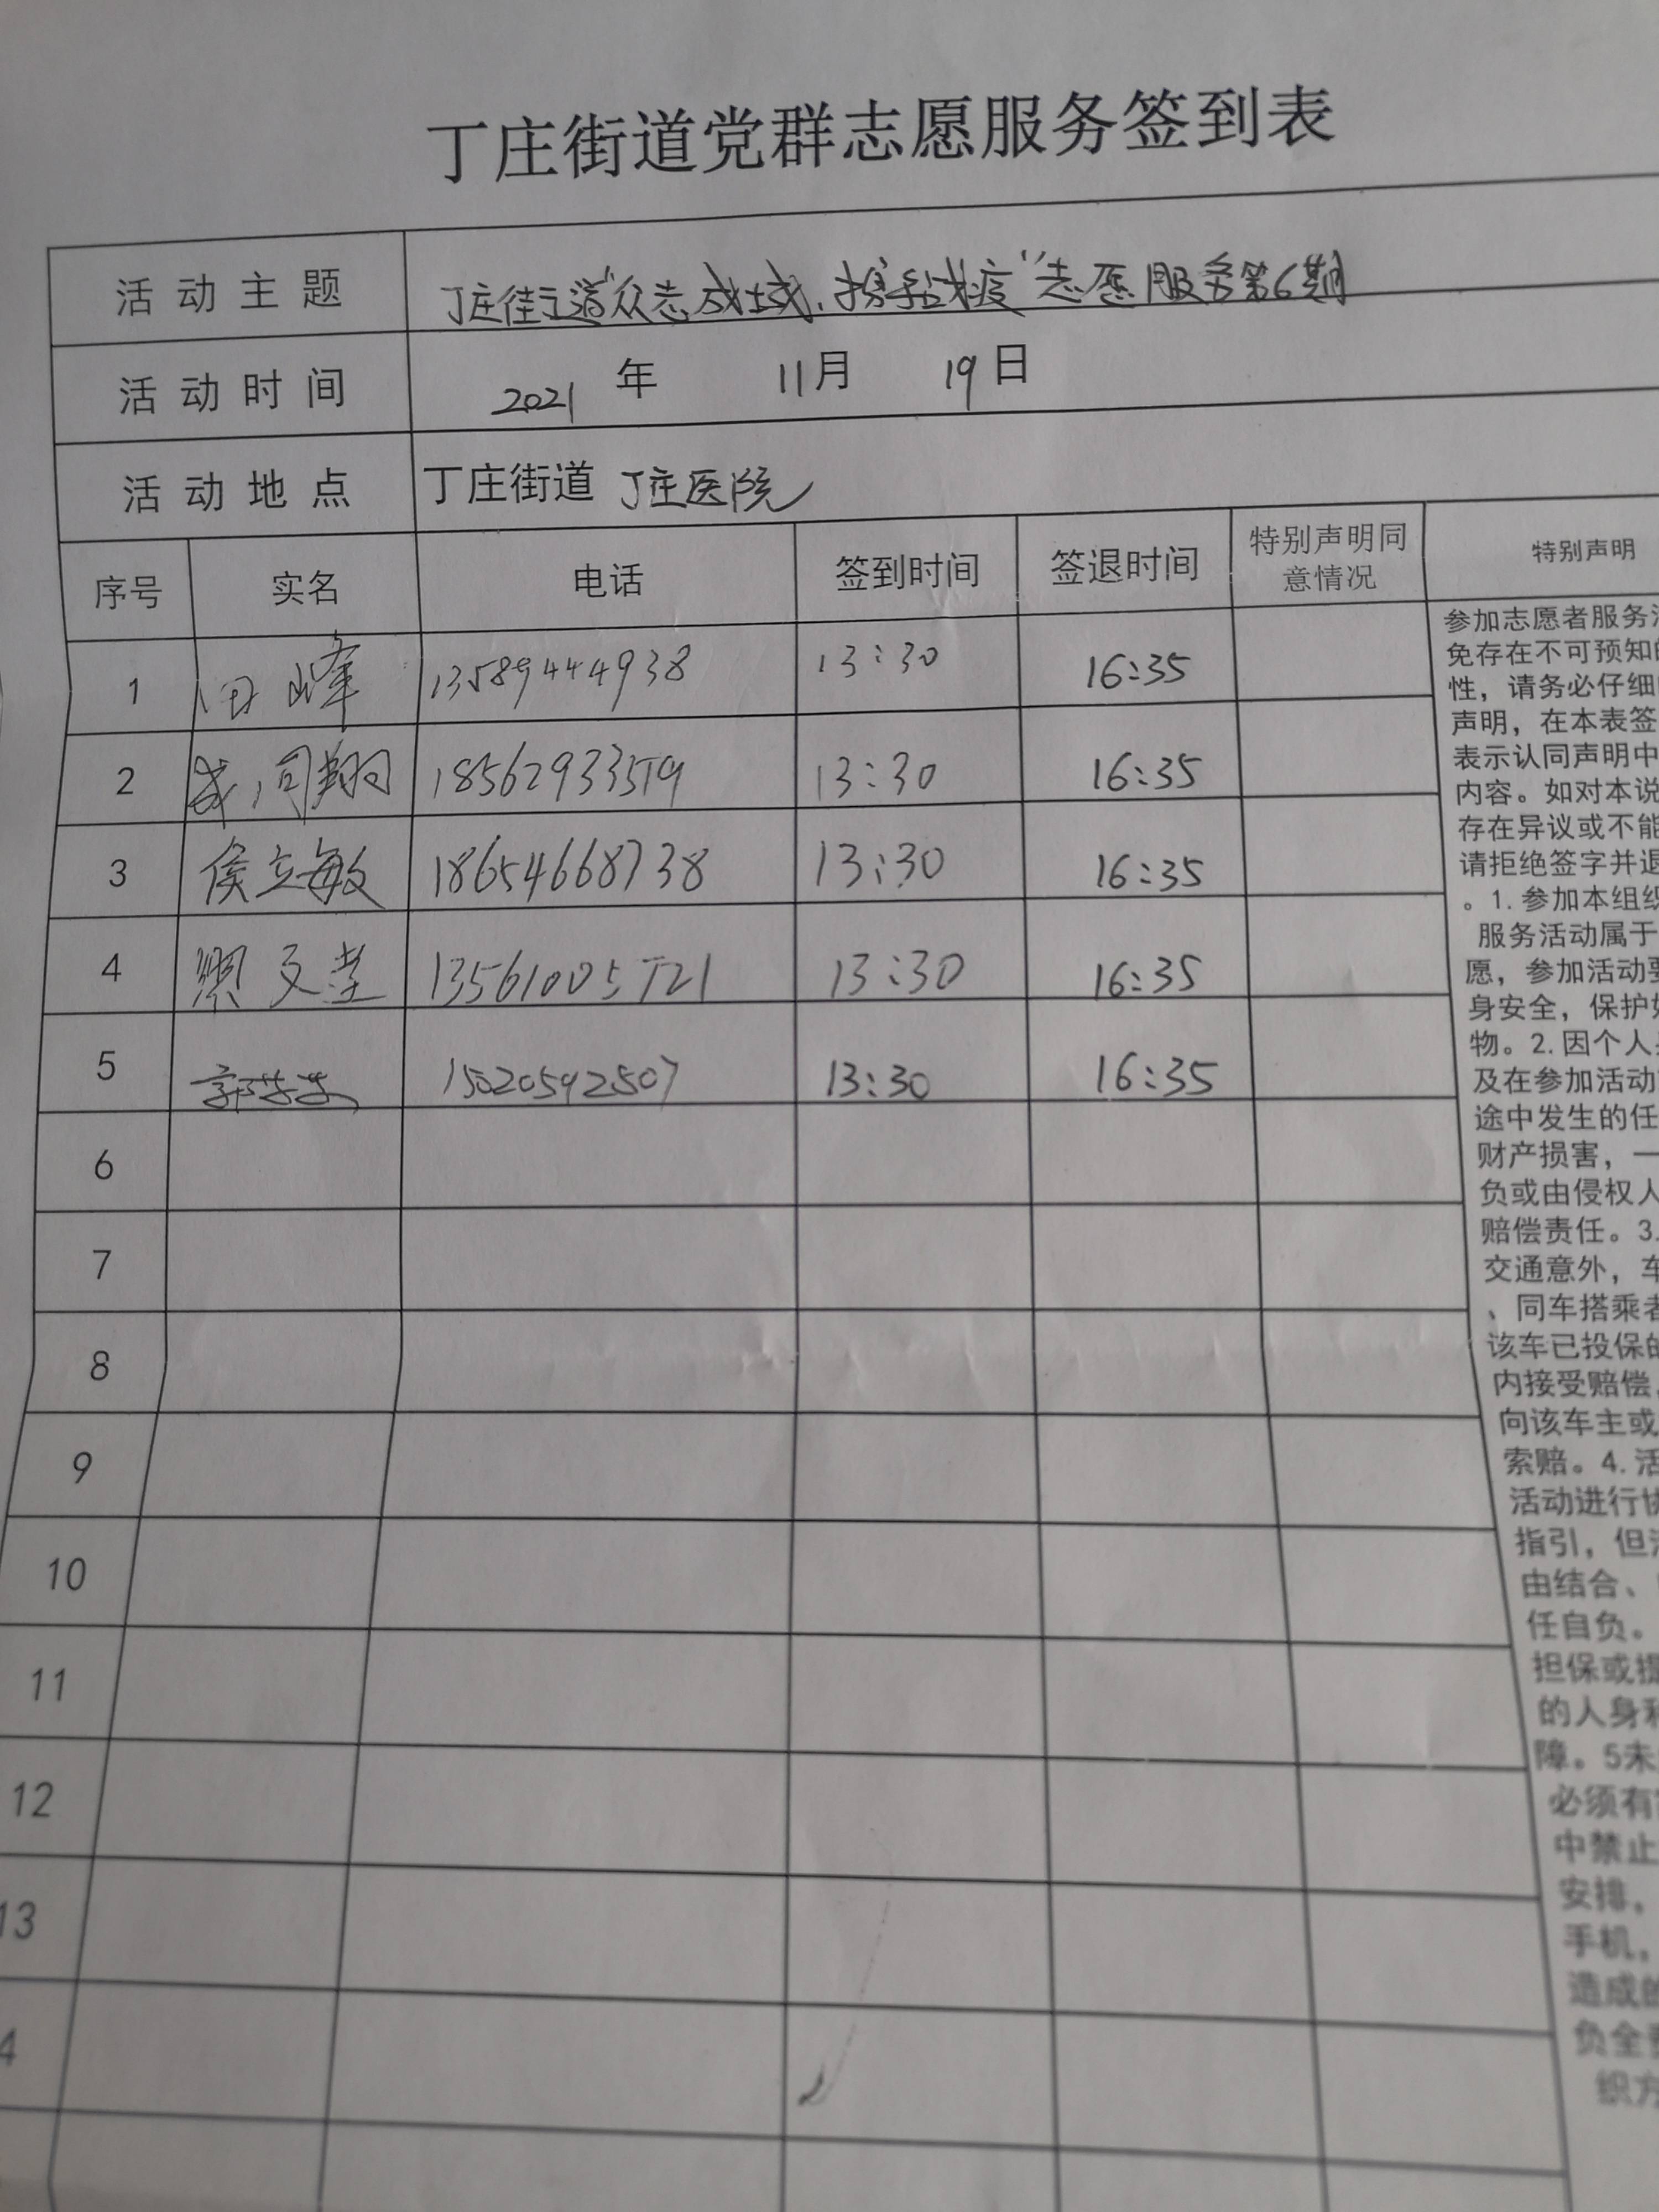 丁庄街道党群志愿服务签到表
活动主题 丁庄街道“众志成城，携手战疫”志愿服务第6期
活动时间 2021年 11月 19日
活动地点 丁庄街道 丁庄医院
序号 实名 电话 签到时间 签退时间 特别声明同意情况 特别声明
1 田峰 13589444938 13:30 16:35
2 同翔 13:30 16:35
3 侯立敏 18654668738 13:30 16:35
4 文堂 13:30 16:35
5 郭 15020592507 13:30 16:35
6
7
8
9
10
11
12
13
4
参加志愿者服务
免存在不可预知
性，请务必仔细
声明，在本表签
表示认同声明中
内容。如对本说
存在异议或不能
请拒绝签字并退
。1.参加本组织
服务活动属于
愿，参加活动要
身安全，保护好
物。2.因个人
及在参加活动
途中发生的任
财产损害，一
负或由侵权人
赔偿责任。3.
交通意外，车
、同车搭乘者
该车已投保的
内接受赔偿，
向该车主或
索赔。4.活
活动进行协
指引，但活
由结合、
任自负。
担保或提
的人身和
障。5未
必须有
中禁止
安排，
手机，
造成的
负全责
织方